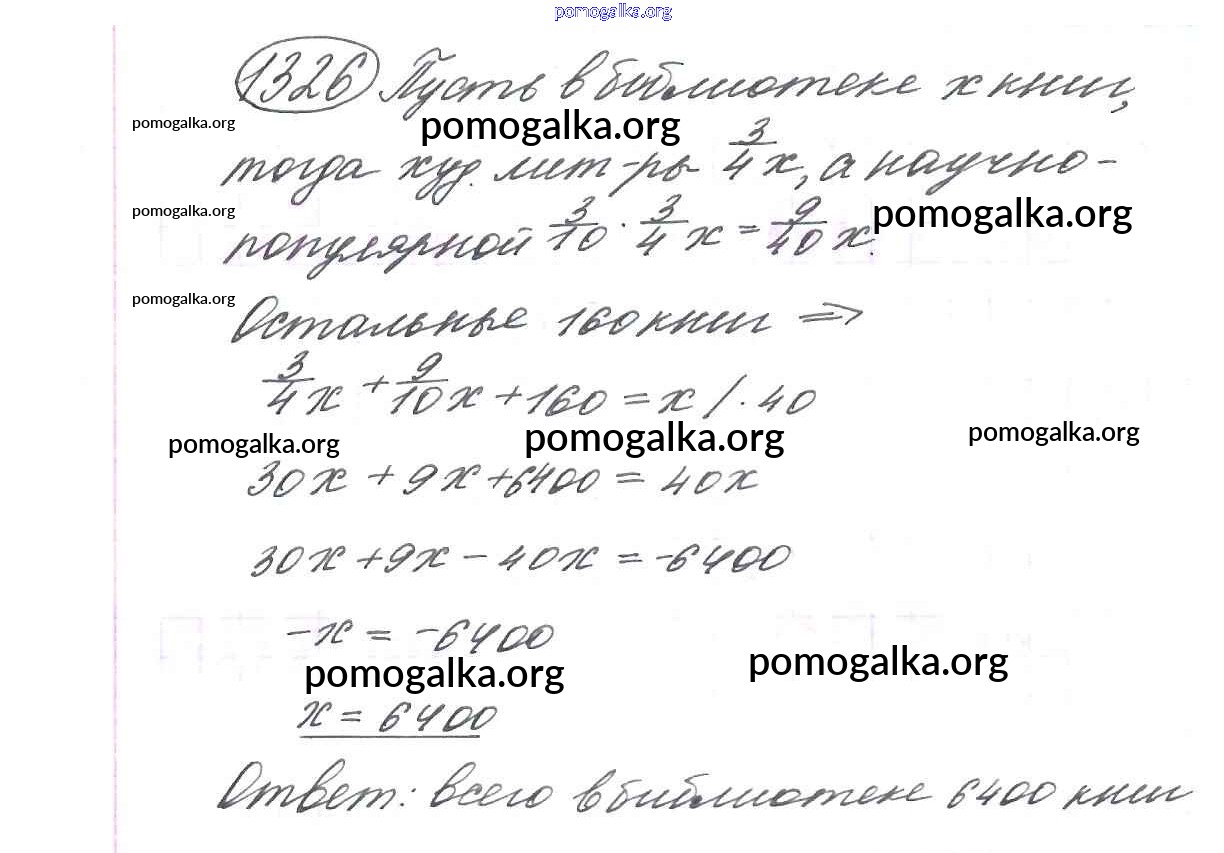 pomogalka.org
1326 Пусть в библиотеке x книг,
pomogalka.org pomogalka.org
тогда худ. лит-ры 3/4 x, а научно-
pomogalka.org pomogalka.org
популярной 3/10 · 3/4 x = 9/40 x.
pomogalka.org
Остальные 160 книг ⇒
3/4 x + 9/10 x + 160 = x / · 40
pomogalka.org pomogalka.org pomogalka.org
30x + 9x + 6400 = 40x
30x + 9x - 40x = -6400
-x = -6400
pomogalka.org pomogalka.org
x = 6400
Ответ: всего в библиотеке 6400 книг